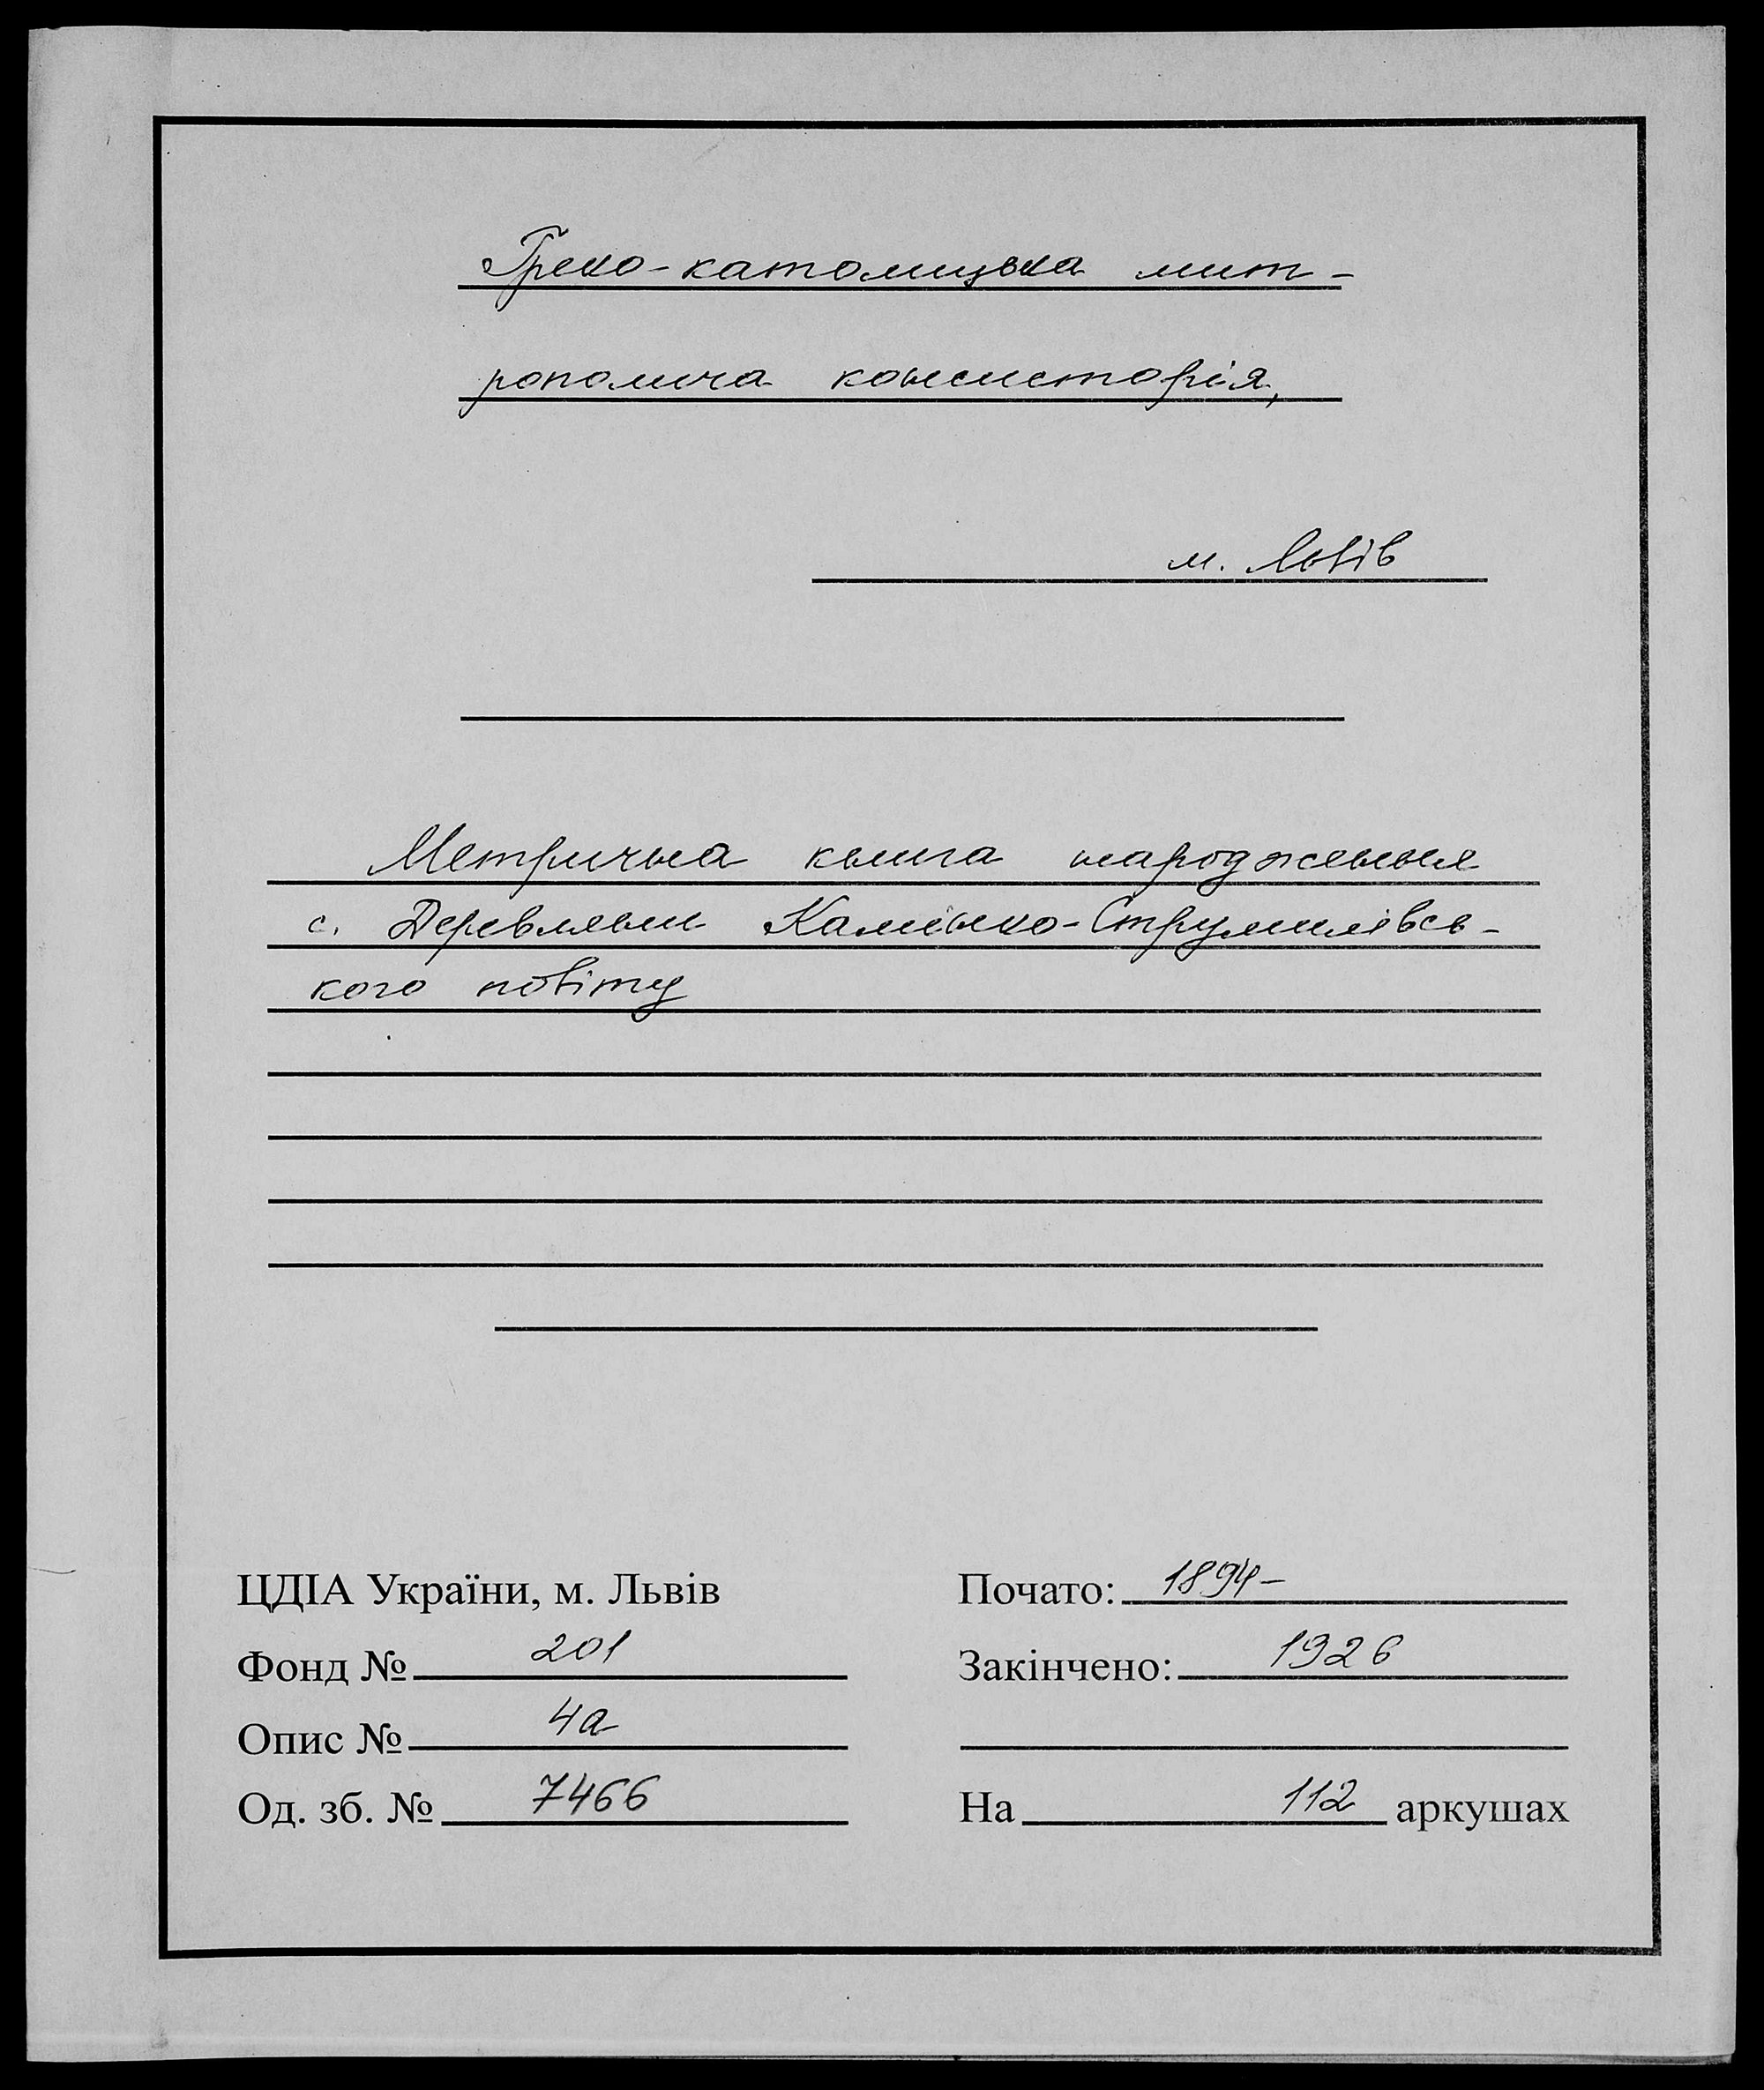 Греко-католицька мит-
рополича консисторія,
м. Львів
Метрична книга народження
с. Деревляни Камінко-Струмилівсь-
кого повіту
ЦДІА України, м. Львів
Почато: 1894-
Фонд № 201
Закінчено: 1926
Опис № 4а
Од. зб. № 7466
На 112 аркушах